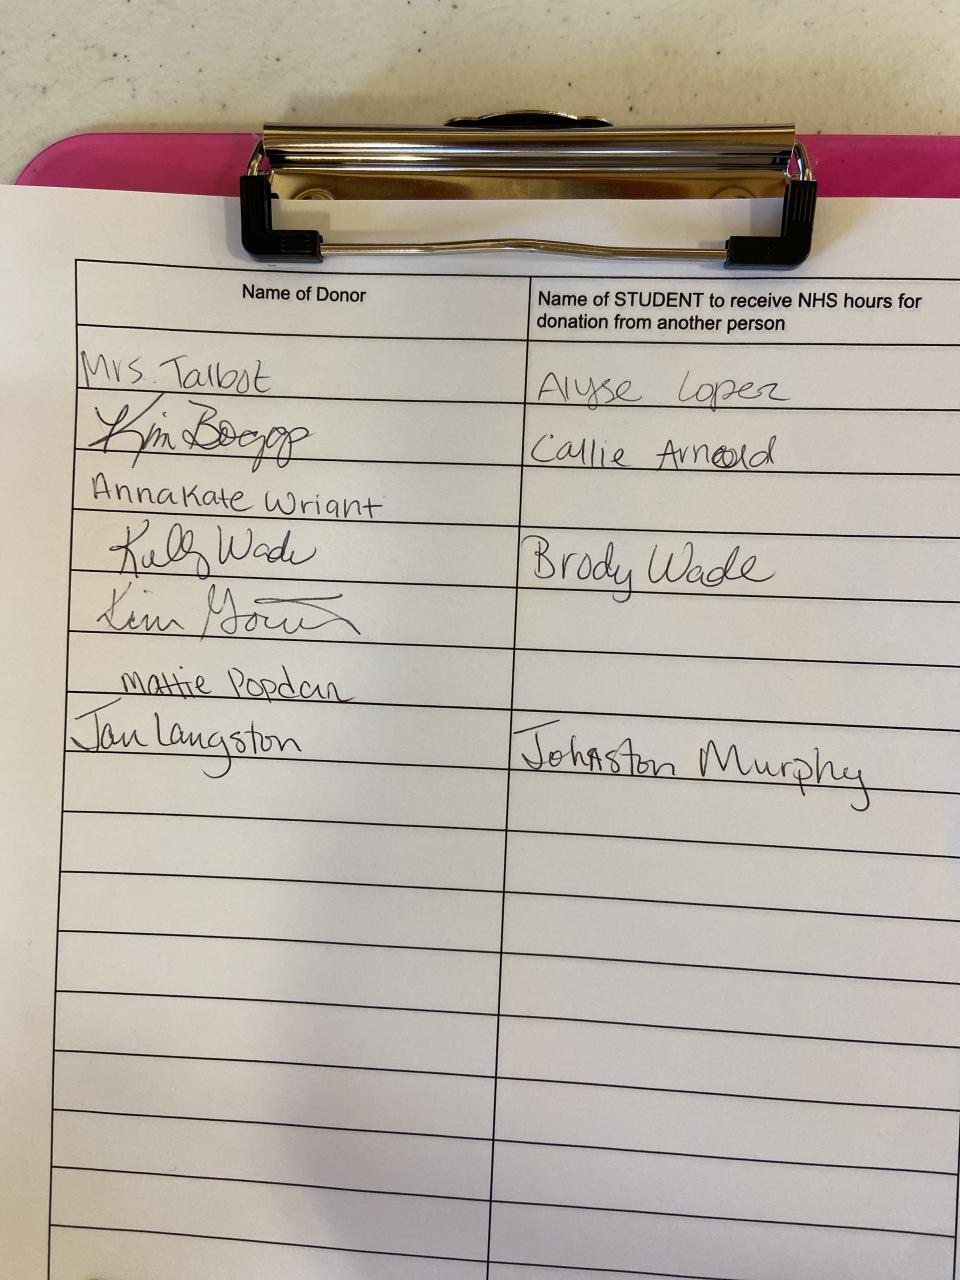 Name of Donor
Name of STUDENT to receive NHS hours for
donation from another person
Mrs. Talbot
Alyse Lopez
Kim
Callie Arnold
AnnaKate Wriant
Kelly Wade
Brody Wade
Kim
Mattie Popdan
Jan Langston
Johnston Murphy